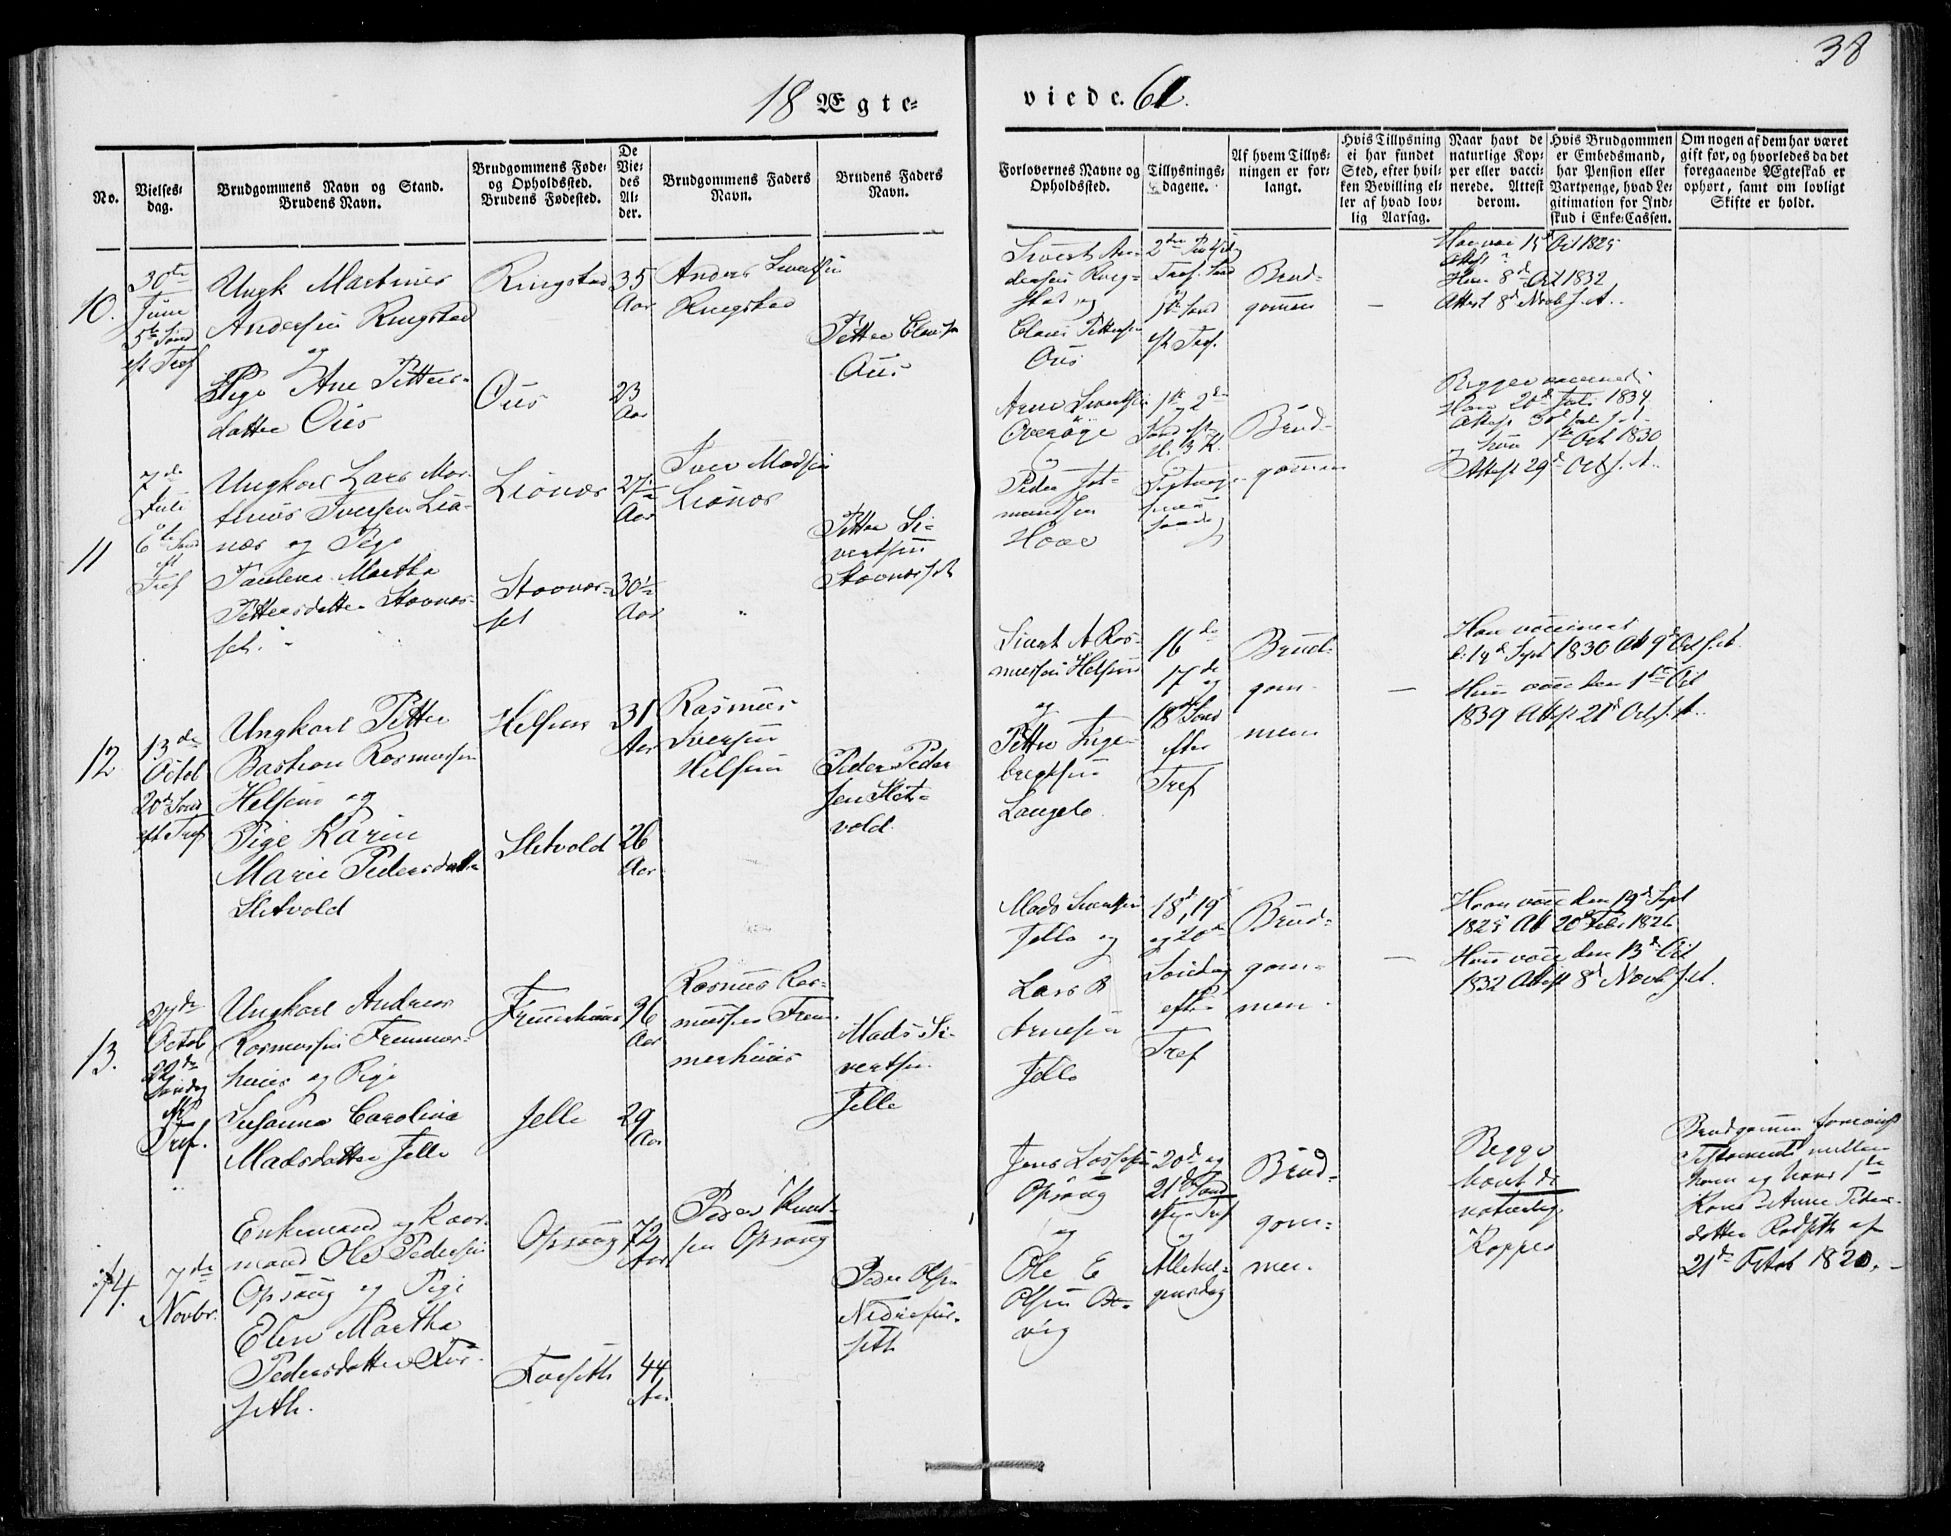 38
18 Ægte-
viede. 61.
No.
Vielses-
dag.
Brudgommens Navn og Stand.
Brudens Navn.
Brudgommens Føde-
og Opholdssted.
Brudens Fødested.
De
Vie-
des
Al-
der.
Brudgommens Faders
Navn.
Brudens Faders
Navn.
Forlovernes Navne og
Opholdssted.
Tillysnings-
dagene.
Af hvem Tillys-
ningen er for-
langt.
Hvis Tillysning
ei har fundet
Sted, efter hvil-
ken Bevilling el-
ler af hvad lov-
lig Aarsag.
Naar havt de
naturlige Kop-
per eller vacci-
nerede. Attest
derom.
Hvis Brudgommen
er Embedsmand,
har Pension eller
Vartpenge, hvad Le-
gitimation for Ind-
skud i Enke-Cassen.
Om nogen af dem har været
gift før, og hvorledes da det
foregaaende Ægteskab er
ophørt, samt om lovligt
Skifte er holdt.
10.
30te
Juni
5te Sønd
eft Tref
Ungk Martinus
Andersen Ringstad
og
Pige Ane Petters-
datter Øus
Ringstad
Øus
35
Aar
23
Aar
Anders Sivertsen
Ringstad
Petter Clausen
Øus
Sivert An-
dersen Ring-
stad og
Claus Pettersen
Øus
Tref. Sønd
1ste Sønd
eft Tref.
Brud-
gommen
—
Han vac 15d Oct 1825
Attest
Hun 8d Oct 1832
Attest 8d Novb s. A.
11
7de
Juli
6te Sønd
eft
Tref
Ungkarl Lars Mar-
tinus Iversen Liø-
nær og Pige
Paulina Martha
Pettersdatter Stavnes-
set.
Liønær
Stavnes-
set
27½
Aar
30½
Aar
Iver Madsen
Liønær
Petter Si-
vertsen
Stavneset
Arne Sivertsen
Overøye
og
Peder Jet-
mundsen
Hove
1ste og 2de
Sønd eft
H. 3 K.
Brud-
gommen
Begge vaccinered
Han 20d Juli 1834
Attest 30d Juli s. A.
Hun 1ste Oct 1830
Attest 29d Oct s. A.
12
13de
Octob
20de Sønd
eft Tref
Ungkarl Petter
Bastian Rasmussen
Helsem og
Pige Karin
Marie Pedersdatter
Sletvold
Helsem
Sletvold
31
Aar
26
Aar
Rasmus
Iversen
Helsem
Peder Peder
sen Slet-
vold.
Sivert A Ras-
mussen Helsem
og
Petter Inge-
brigtsen
Langelo
16de
17de
og
18de Sønd
efter
Tref
Brud-
gom-
men
—
Han vaccineret
d. 14d Sept 1830 At 9d Oct s. A.
Hun vacc den 1ste Oct
1839 Attest 21d Oct s. A.
13.
27de
Octob
22de
Søndag
eft
Tref.
Ungkarl Andreas
Rasmussen Fremmer-
huus og Pige
Susanna Carolina
Madsdatter Jelle
Fremmerhuus
Jelle
26
Aar
29
Aar
Rasmus Ras-
mussen Frem-
merhuus
Mads Si-
vertsen
Jelle
Mads Sivertsen
Jelle og
Lars B
Arnesen
Jelle
18d, 19d
og 20de
Søndag
efter
Tref
Brud-
gom-
men.
—
Han vacc den 19d Sept
1825 At 20d Febr 1826
Hun vacc den 13d Oct
1832 Attest 8d Novb s. A.
14.
7de
Novbr.
Enkemand og Kaar-
mand Ole Pedersen
Opsøug og Pige
Elen Martha
Pedersdatter Fur-
seth.
Opsøug
Furseth
72
Aar
44
Aar
Peder Knud-
sen Opsøug
Peder Olsen
Nedrefur-
seth
Jens Lassesen
Opsøug
og
Ole E
Olsen Br-
vig
20d og
21de Sønd
efter Tref
og
Allehel-
gensdag
Brud-
gom-
men
Begge
havt de
naturlige
Kopper
Brudgommen foreviist
Testamente mellem
ham og hans 1ste
Kone Anne Peders-
datter Rødseth af
21de Octob 1820.